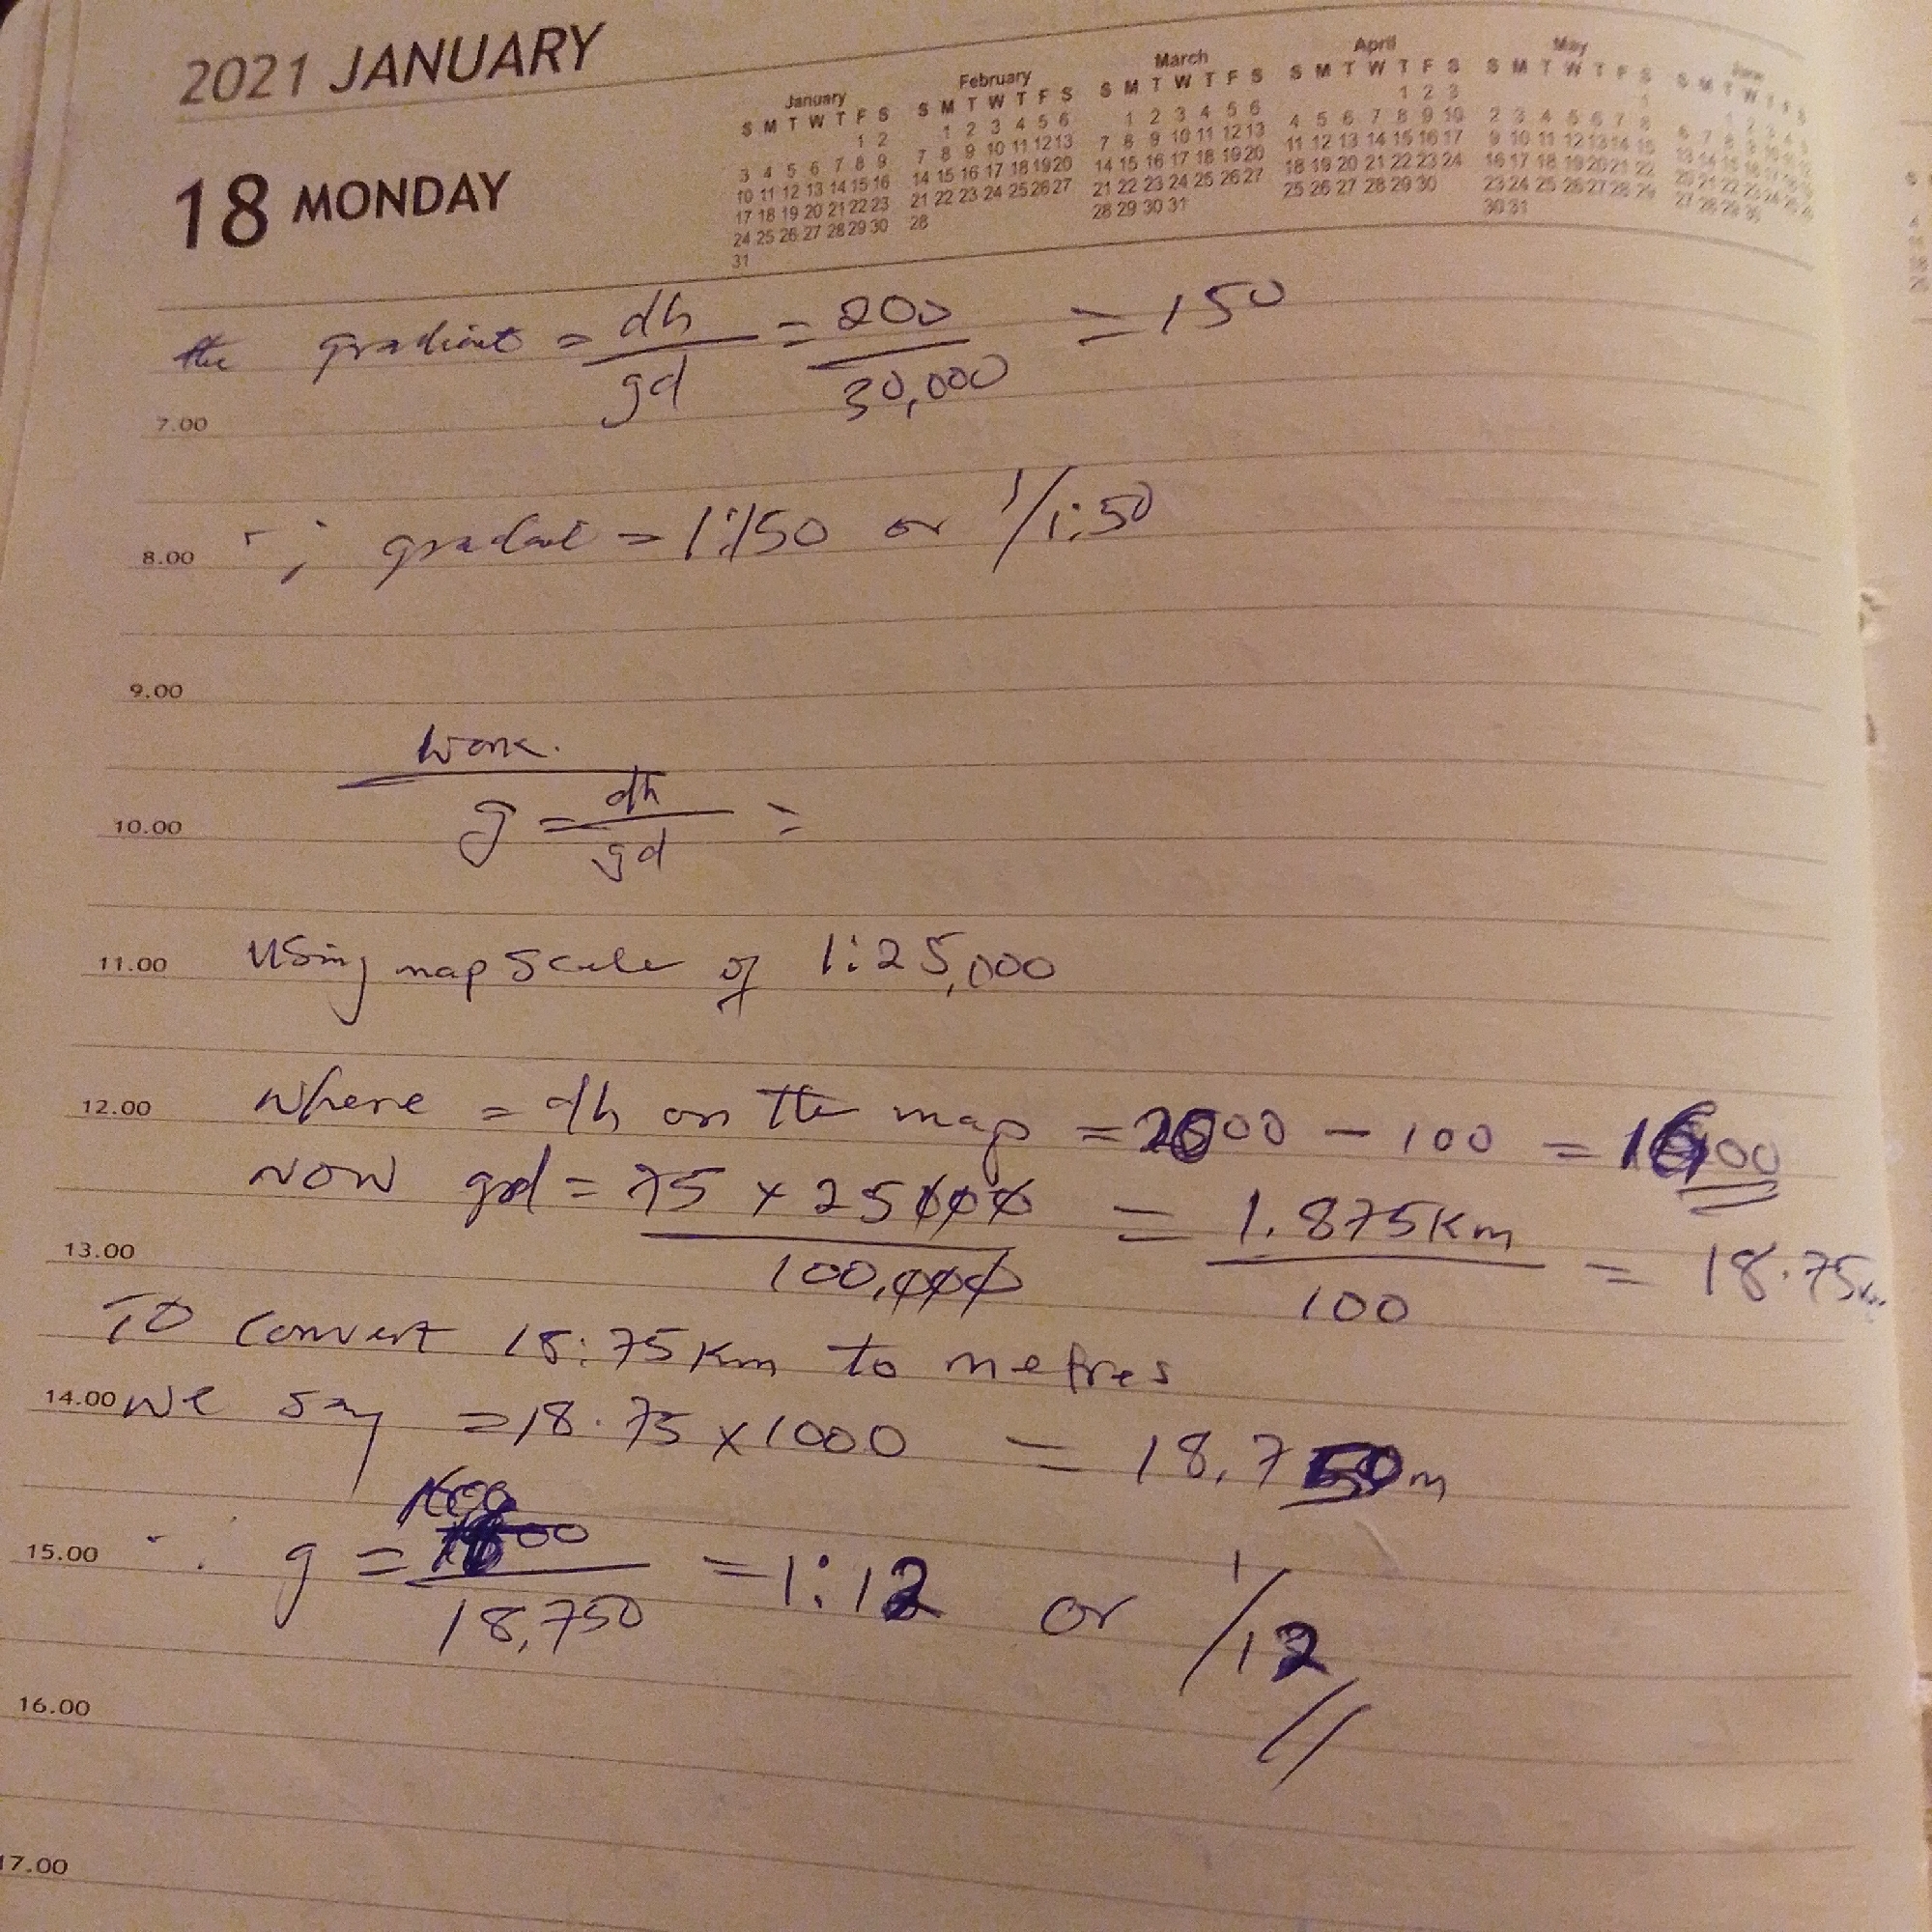 2021 JANUARY
18 MONDAY
January February March April May June
S M T W T F S S M T W T F S S M T W T F S S M T W T F S S M T W T F S S M T W
1 2 1 2 3 4 5 6 1 2 3 4 5 6 1 2 3 1
3 4 5 6 7 8 9 7 8 9 10 11 12 13 7 8 9 10 11 12 13 4 5 6 7 8 9 10 2 3 4 5 6 7 8
10 11 12 13 14 15 16 14 15 16 17 18 19 20 14 15 16 17 18 19 20 11 12 13 14 15 16 17 9 10 11 12 13 14 15
17 18 19 20 21 22 23 21 22 23 24 25 26 27 21 22 23 24 25 26 27 18 19 20 21 22 23 24 16 17 18 19 20 21 22
24 25 26 27 28 29 30 28 28 29 30 31 25 26 27 28 29 30 23 24 25 26 27 28 29
31 30 31
the gradient = dh/gd = 200/30,000 = 150
7.00
8.00 ∴ gradient = 1:150 or 1/1:50
9.00
Work.
10.00 g = dh/gd =
11.00 Using map scale of 1:25,000
12.00 where = dh on the map = 00 - 100 = 00
NOW gd = 75 x 25000/100,000 = 1.875Km/100 = 18.75Km
13.00
TO convert 18:75Km to metres
14.00 we say = 18.75 x 1000 = 18,750m
15.00 ∴ g = 18,750 = 1:12 or 1/12
16.00
17.00